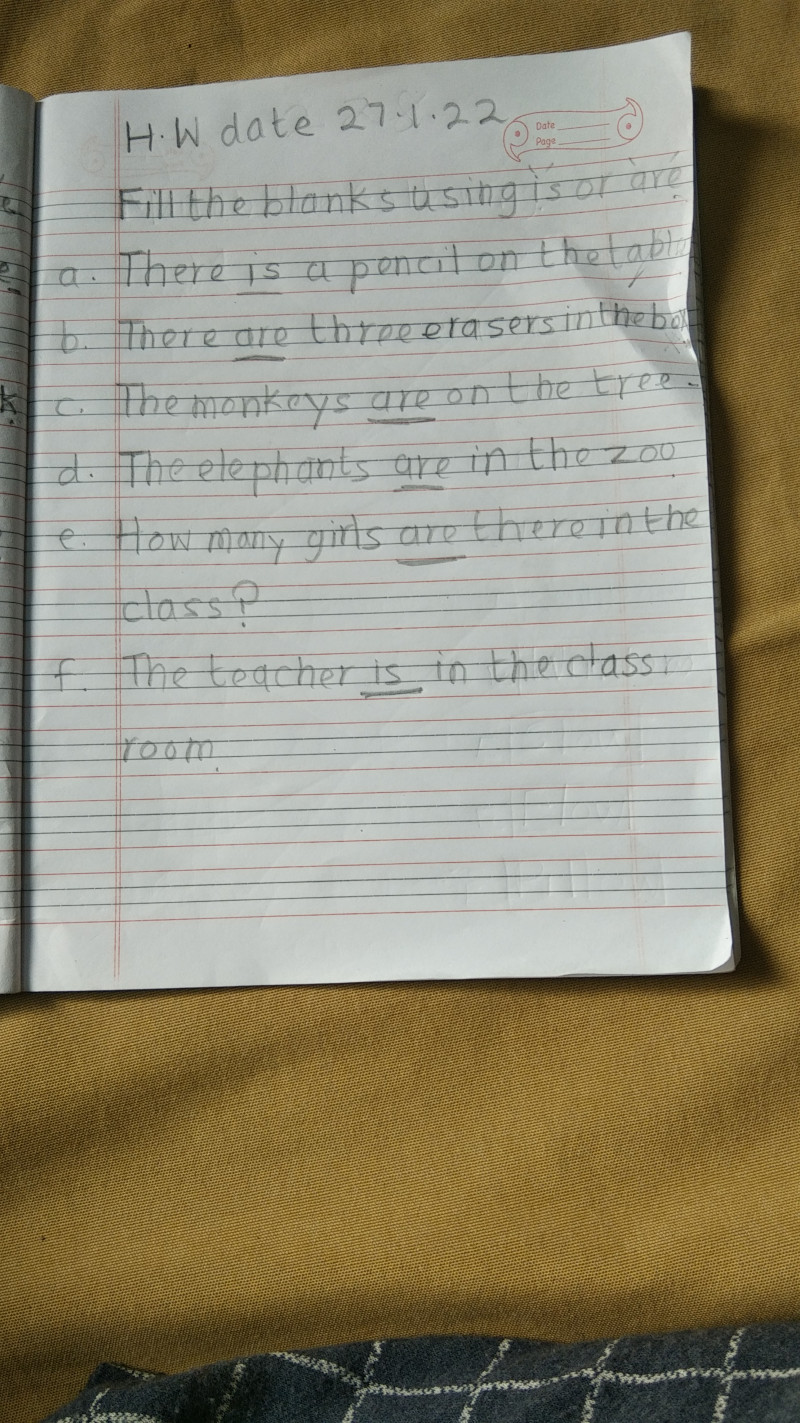 H.W date 27.1.22
Date
Page
Fill the blanks using 'is or 'are'
a. There is a pencil on the table
b. There are three erasers in the box
c. The monkeys are on the tree.
d. The elephants are in the zoo.
e. How many girls are there in the
class?
f. The teacher is in the class
room.